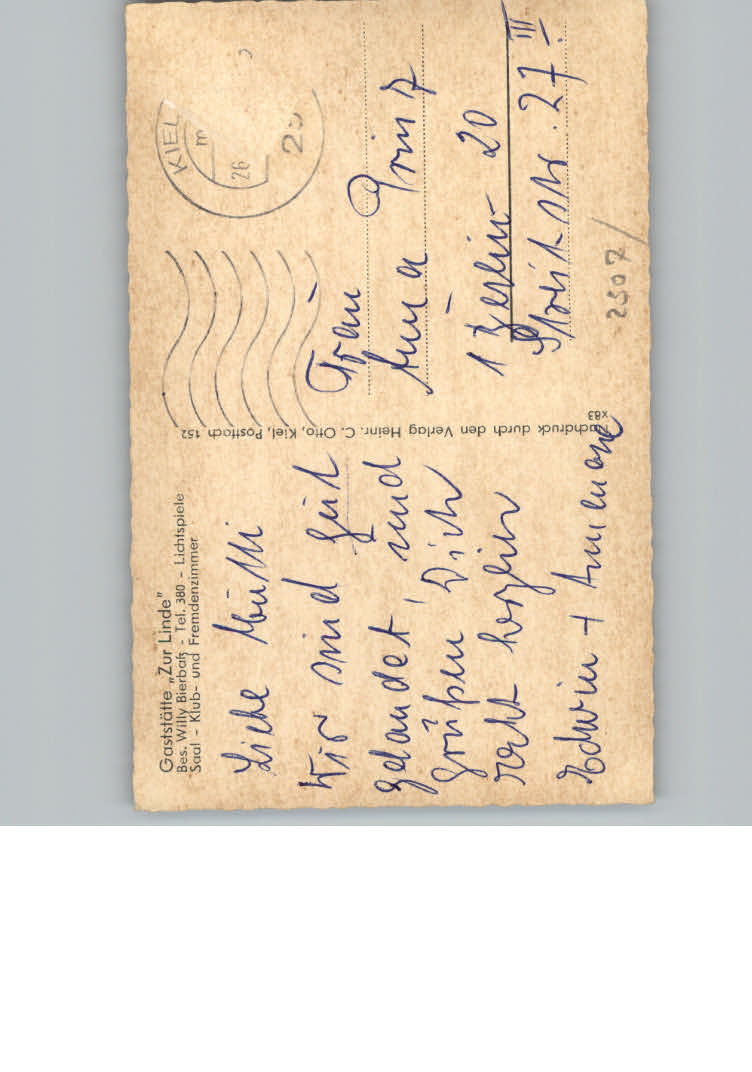 Gaststätte „Zur Linde"
Bes. Willy Bierbaß - Tel. 380 - Lichtspiele
Saal - Klub- und Fremdenzimmer
Liebe Mutti
Wir sind gut
gelandet, und
grüßen Dich
recht herzlich
Edwin + Annemarie
Nachdruck durch den Verlag Heinr. C. Otto, Kiel, Postfach 152
x83
KIEL
m
26
23
Frau
Anna Prinz
1 Berlin 20
27 III
2507/